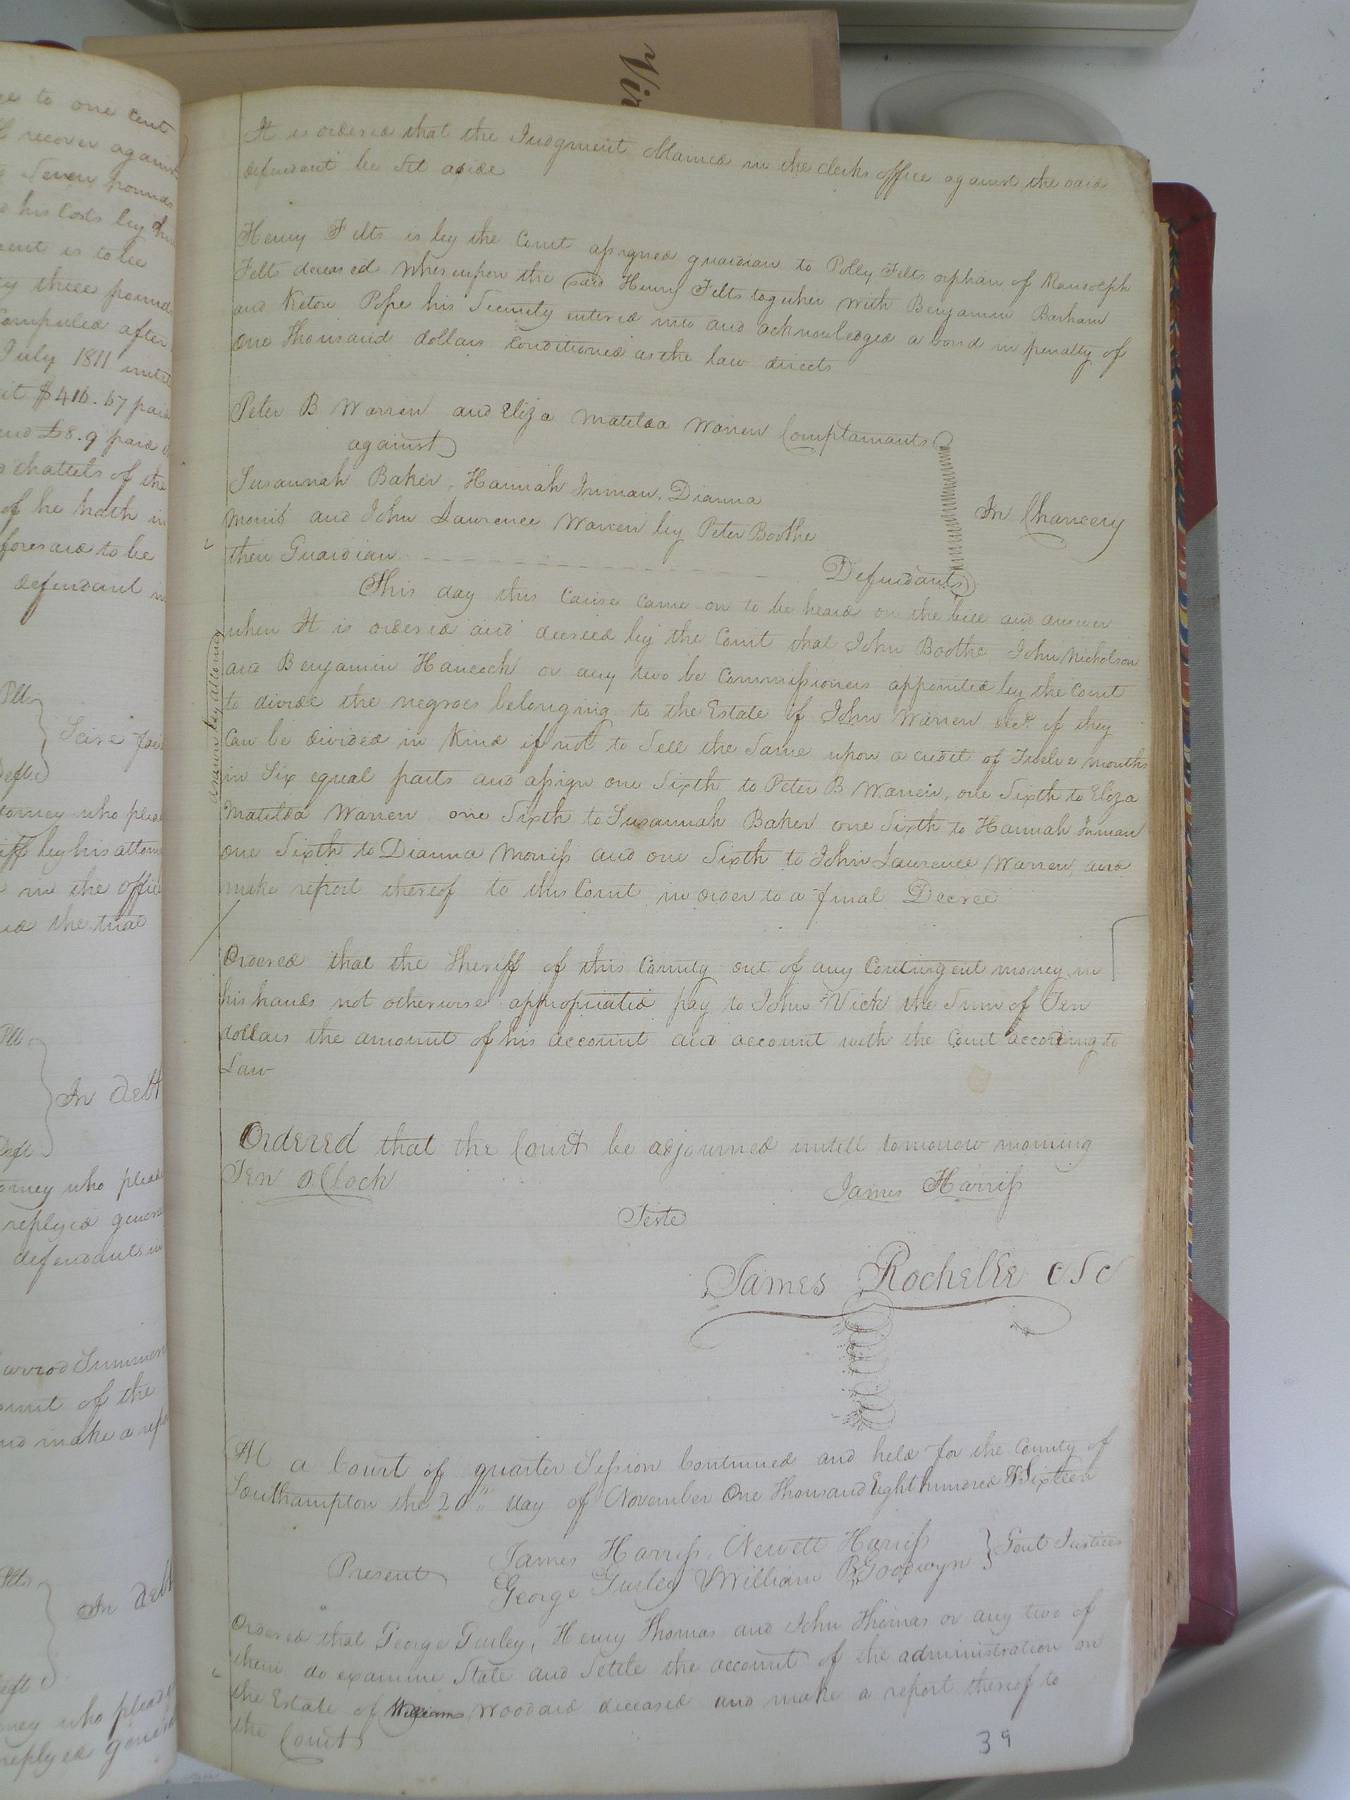 It is ordered that the Judgment obtained in the clerks office against the said
defendant be set aside
Henry Felts is by the Court assigned guardian to Polly Felts orphan of Randolph
Felts deceased whereupon the said Henry Felts together with Benjamin Barham
and Keton Pope his Security entered into and acknowledged a bond in penalty of
One Thousand dollars conditioned as the law directs
Peter B Warren and Eliza Matilda Warren Complainants
against
Susannah Baker, Hannah Inman, Dianna
Morriss and John Laurence Warren by Peter Boothe
their Guardian Defendants
In Chancery
This day this cause came on to be heard on the bill and answer
when It is ordered and decreed by the Court that John Boothe John Nicholson
and Benjamin Hancock or any two be Commissioners appointed by the Court
to divide the negroes belonging to the Estate of John Warren decd. if they
Can be divided in Kind if not to Sell the Same upon a credit of Twelve months
in Six equal parts and assign one Sixth to Peter B Warren, one Sixth to Eliza
Matilda Warren one Sixth to Susannah Baker one Sixth to Hannah Inman
one Sixth to Dianna Morriss and one Sixth to John Laurence Warren, and
make report thereof to this Court in order to a final Decree
Ordered that the Sheriff of this County out of any Contingent money in
his hands not otherwise appropriated pay to John Vick the Sum of Ten
dollars the amount of his account and account with the Court according to
Law
Ordered that the Court be adjourned untill tomorrow morning
Ten O Clock
James Harriss
Teste
James Rochelle CSC
At a Court of quarter Session Continued and held for the County of
Southampton the 20th day of November One Thousand Eight hundred & Sixteen
Present
James Harriss, Newett Harriss
George Gurley & William B. Goodwyn
Gent Justices
Ordered that George Gurley, Henry Thomas and John Thomas or any two of
them do examine State and Settle the account of the administration on
the Estate of Williams Woodard deceased and make a report thereof to
the Court
39
ge to one cent
recover against
Seven pounds
his Costs by
ent is to be
three pounds
Computed after
July 1811 untill
$416.67 paid
and £8.9 paid
chattels of the
of he hath in
foresaid to be
defendant in
Plt
Scire fa
Deft
torney who plea
iff by his attorn
in the office
the trial
Plt
In debt
Deft
orney who plea
replyed genera
defendants
Summon
ount of the
and make a rep
Plt
In debt
Deft
ney who plead
replyed genera